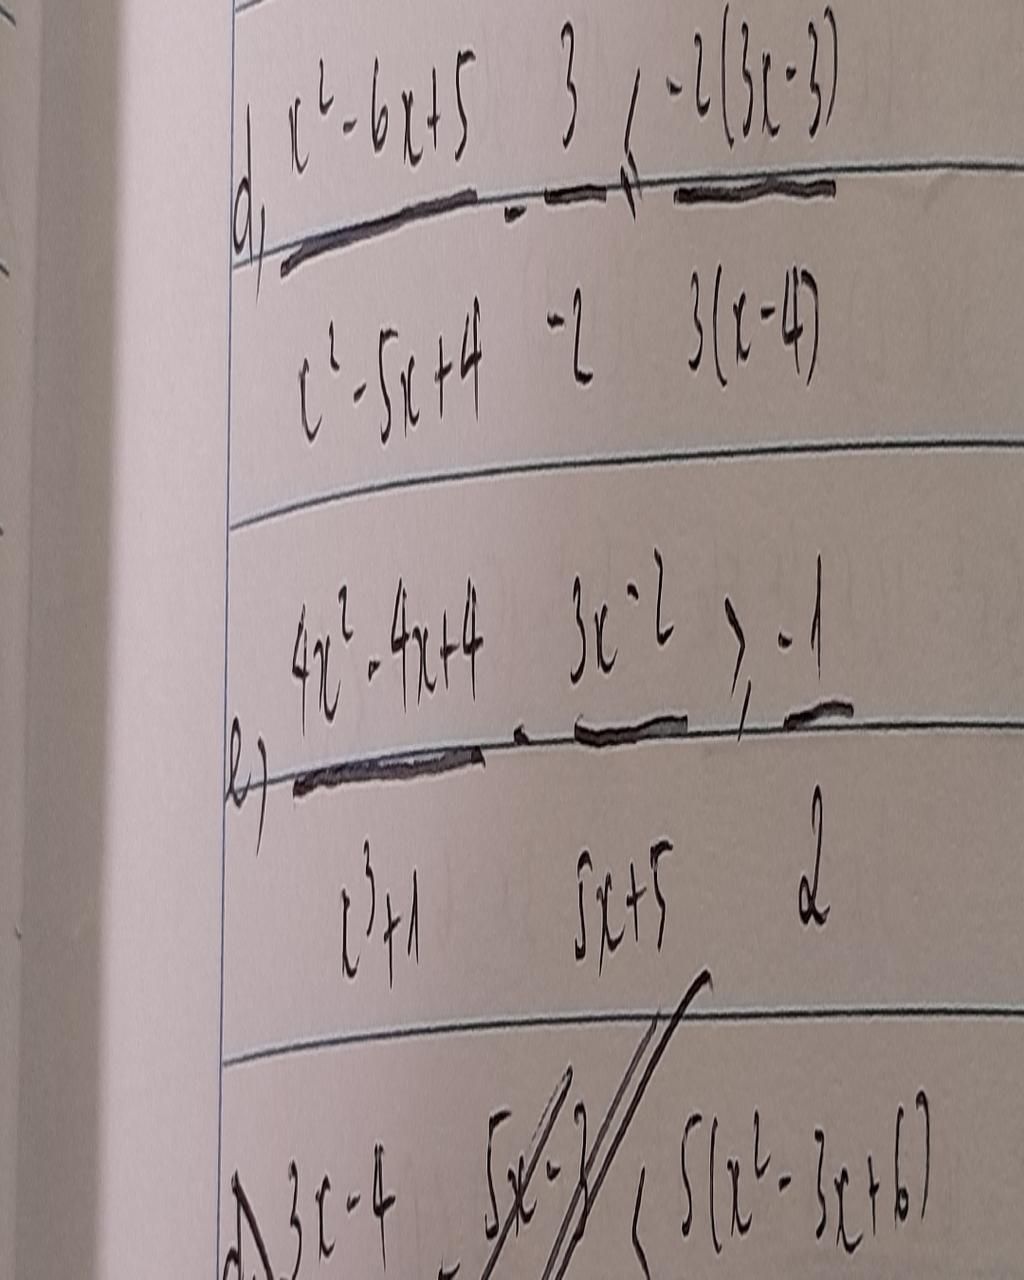 d, x² - 6x + 5 / x² - 5x + 4 - 3 / -2 ≤ -2(3x - 3) / 3(x - 4)
e) 4x² - 4x + 4 / x³ + 1 - 3x - 2 / 5x + 5 ≥ -1 / 2
3x - 4 - < 5(x² - 3x + 6)